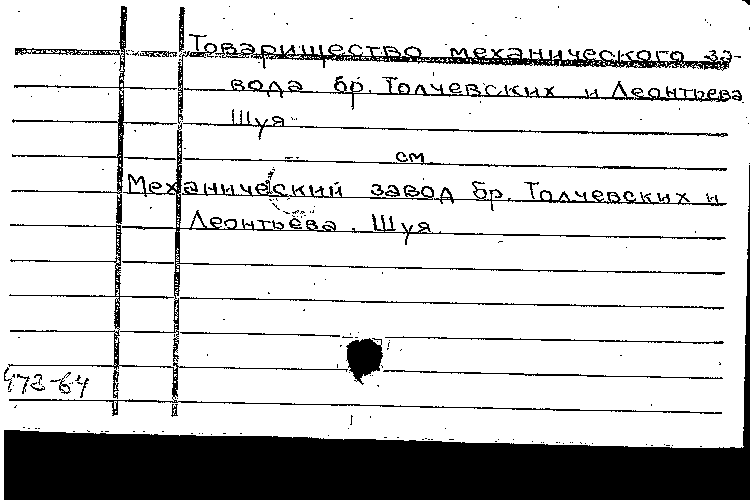 Товарищество механического за-
вода бр. Толчевских и Леонтьева
Шуя
см.
Механический завод бр. Толчевских и
Леонтьева. Шуя
473-64